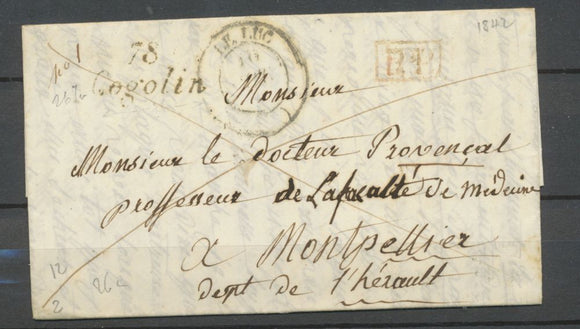 1842
78
Cogolin
LE LUC
P.P.
Monsieur
Monsieur le docteur Provençal
proffesseur de La faculté de médecine
a Montpellier
dept de l'hérault
12
2
26c